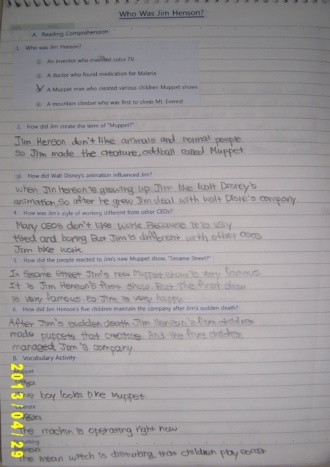 Who Was Jim Henson?
A. Reading Comprehension
1. Who was Jim Henson?
① An inventor who invented color TV
② A doctor who found medication for Malaria
③ A Muppet man who created various children Muppet shows
④ A mountain climber who was first to climb Mt. Everest
2. How did Jim create the term of "Muppet?"
Jim Henson don't like animals and normal people
So Jim made the creature, oddball called Muppet
3. How did Walt Disney's animation influenced Jim?
When Jim henson is growing up Jim like Walt Disney's
animation, So after he grew Jim deal with Walt Disney's company
4. How was Jim's style of working different from other CEOs?
Many CEOs don't like work. Because it is very
tired and boring But Jim is different with other CEOs
Jim like work
5. How did the people reacted to Jim's new Muppet show, "Sesame Street?"
In Sesame Street Jim's new Muppet show is very famous
It is Jim Henson's first show. But the first show
is very famous so Jim is very happy
6. How did Jim Henson's five children maintain the company after Jim's sudden death?
After Jim's sudden death Jim Henson's five children
made puppets that creature And the five children
managed Jim's company
B. Vocabulary Activity
boy looks like Muppet
The machin is operating right now
The mean witch is disturbing that children play
2013/04/29